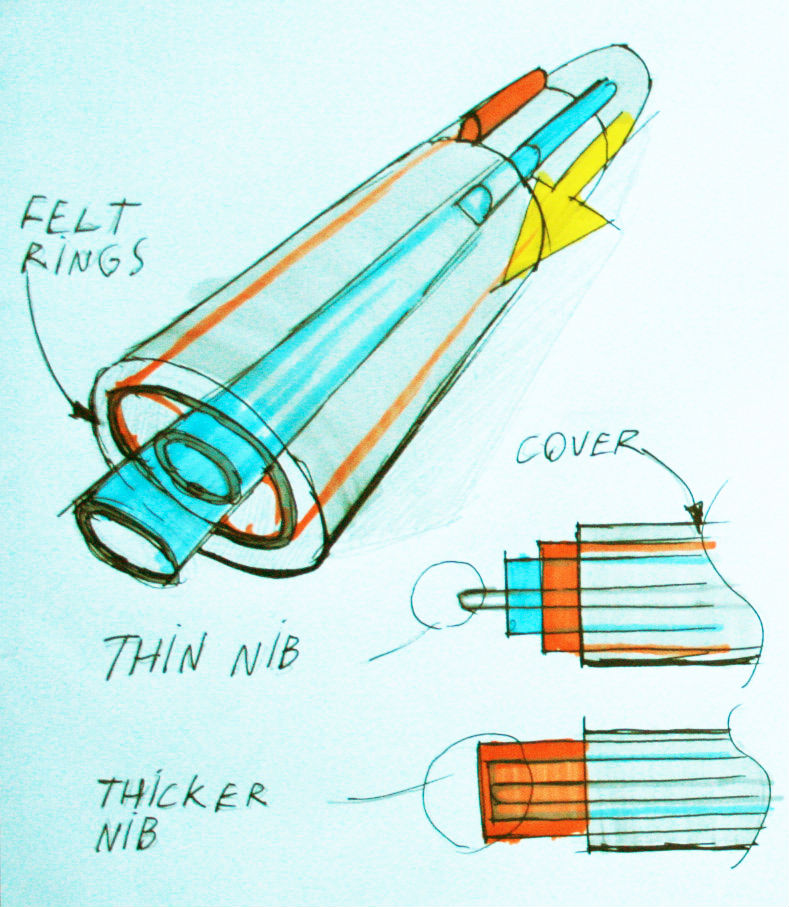 FELT
RINGS
COVER
THIN NIB
THICKER
NIB